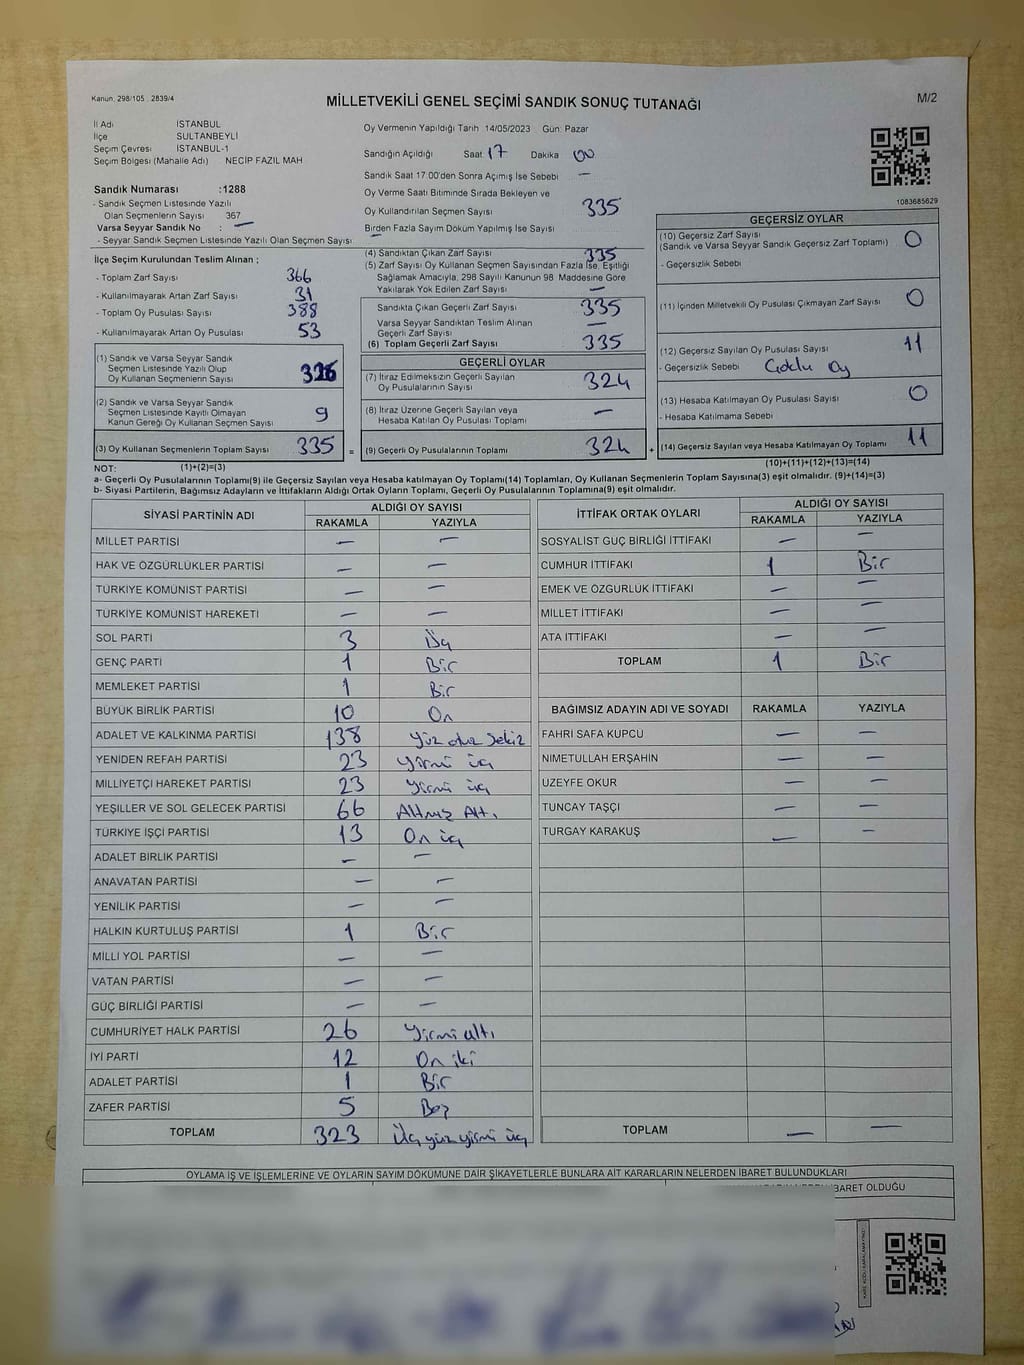 Kanun, 298/105, 2839/4
MİLLETVEKİLİ GENEL SEÇİMİ SANDIK SONUÇ TUTANAĞI
M/2
İl Adı İSTANBUL
İlçe SULTANBEYLİ
Seçim Çevresi İSTANBUL-1
Seçim Bölgesi (Mahalle Adı) NECİP FAZIL MAH
Oy Vermenin Yapıldığı Tarih 14/05/2023 Gün: Pazar
Sandığın Açıldığı Saat 17 Dakika 00
Sandık Saat 17:00'den Sonra Açımış İse Sebebi —
Oy Verme Saati Bitiminde Sırada Bekleyen ve
Oy Kullandırılan Seçmen Sayısı 335
Birden Fazla Sayım Döküm Yapılmış İse Sayısı —
1083685629
Sandık Numarası :1288
- Sandık Seçmen Listesinde Yazılı
Olan Seçmenlerin Sayısı 367
Varsa Seyyar Sandık No : —
- Seyyar Sandık Seçmen Listesinde Yazılı Olan Seçmen Sayısı:
İlçe Seçim Kurulundan Teslim Alınan ;
- Toplam Zarf Sayısı 366
- Kullanılmayarak Artan Zarf Sayısı 31
- Toplam Oy Pusulası Sayısı 388
- Kullanılmayarak Artan Oy Pusulası 53
(1) Sandık ve Varsa Seyyar Sandık
Seçmen Listesinde Yazılı Olup
Oy Kullanan Seçmenlerin Sayısı 326
(2) Sandık ve Varsa Seyyar Sandık
Seçmen Listesinde Kayıtlı Olmayan
Kanun Gereği Oy Kullanan Seçmen Sayısı 9
(3) Oy Kullanan Seçmenlerin Toplam Sayısı 335 =
(4) Sandıktan Çıkan Zarf Sayısı 335
(5) Zarf Sayısı Oy Kullanan Seçmen Sayısından Fazla İse, Eşitliği
Sağlamak Amacıyla, 298 Sayılı Kanunun 98. Maddesine Göre
Yakılarak Yok Edilen Zarf Sayısı —
Sandıkta Çıkan Geçerli Zarf Sayısı 335
Varsa Seyyar Sandıktan Teslim Alınan
Geçerli Zarf Sayısı —
(6) Toplam Geçerli Zarf Sayısı 335
GEÇERLİ OYLAR
(7) İtiraz Edilmeksizin Geçerli Sayılan
Oy Pusulalarının Sayısı 324
(8) İtiraz Üzerine Geçerli Sayılan veya
Hesaba Katılan Oy Pusulası Toplamı —
(9) Geçerli Oy Pusulalarının Toplamı 324 +
GEÇERSİZ OYLAR
(10) Geçersiz Zarf Sayısı 0
(Sandık ve Varsa Seyyar Sandık Geçersiz Zarf Toplamı)
- Geçersizlik Sebebi
(11) İçinden Milletvekili Oy Pusulası Çıkmayan Zarf Sayısı 0
(12) Geçersiz Sayılan Oy Pusulası Sayısı 11
- Geçersizlik Sebebi Çoklu Oy
(13) Hesaba Katılmayan Oy Pusulası Sayısı 0
- Hesaba Katılmama Sebebi
(14) Geçersiz Sayılan veya Hesaba Katılmayan Oy Toplamı 11
NOT: (1)+(2)=(3)
(10)+(11)+(12)+(13)=(14)
a- Geçerli Oy Pusulalarının Toplamı(9) ile Geçersiz Sayılan veya Hesaba katılmayan Oy Toplamı(14) Toplamları, Oy Kullanan Seçmenlerin Toplam Sayısına(3) eşit olmalıdır. (9)+(14)=(3)
b- Siyasi Partilerin, Bağımsız Adayların ve İttifakların Aldığı Ortak Oyların Toplamı, Geçerli Oy Pusulalarının Toplamına(9) eşit olmalıdır.
SİYASİ PARTİNİN ADI ALDIĞI OY SAYISI
RAKAMLA YAZIYLA
MİLLET PARTİSİ — —
HAK VE ÖZGÜRLÜKLER PARTİSİ — —
TÜRKİYE KOMÜNİST PARTİSİ — —
TÜRKİYE KOMÜNİST HAREKETİ — —
SOL PARTİ 3 Üç
GENÇ PARTİ 1 Bir
MEMLEKET PARTİSİ 1 Bir
BÜYÜK BİRLİK PARTİSİ 10 On
ADALET VE KALKINMA PARTİSİ 138 Yüz otuz sekiz
YENİDEN REFAH PARTİSİ 23 Yirmi üç
MİLLİYETÇİ HAREKET PARTİSİ 23 Yirmi üç
YEŞİLLER VE SOL GELECEK PARTİSİ 66 Altmış Altı
TÜRKİYE İŞÇİ PARTİSİ 13 On üç
ADALET BİRLİK PARTİSİ — —
ANAVATAN PARTİSİ — —
YENİLİK PARTİSİ — —
HALKIN KURTULUŞ PARTİSİ 1 Bir
MİLLİ YOL PARTİSİ — —
VATAN PARTİSİ — —
GÜÇ BİRLİĞİ PARTİSİ — —
CUMHURİYET HALK PARTİSİ 26 Yirmi altı
İYİ PARTİ 12 On iki
ADALET PARTİSİ 1 Bir
ZAFER PARTİSİ 5 Beş
TOPLAM 323 Üç yüz yirmi üç
İTTİFAK ORTAK OYLARI ALDIĞI OY SAYISI
RAKAMLA YAZIYLA
SOSYALİST GÜÇ BİRLİĞİ İTTİFAKI — —
CUMHUR İTTİFAKI 1 Bir
EMEK VE ÖZGÜRLÜK İTTİFAKI — —
MİLLET İTTİFAKI — —
ATA İTTİFAKI — —
TOPLAM 1 Bir
BAĞIMSIZ ADAYIN ADI VE SOYADI RAKAMLA YAZIYLA
FAHRİ SAFA KUPCU — —
NİMETULLAH ERŞAHİN — —
ÜZEYFE OKUR — —
TUNCAY TAŞÇI — —
TURGAY KARAKUŞ — —
TOPLAM — —
OYLAMA İŞ VE İŞLEMLERİNE VE OYLARIN SAYIM DÖKÜMÜNE DAİR ŞİKAYETLERLE BUNLARA AİT KARARLARIN NELERDEN İBARET BULUNDUKLARI
İBARET OLDUĞU